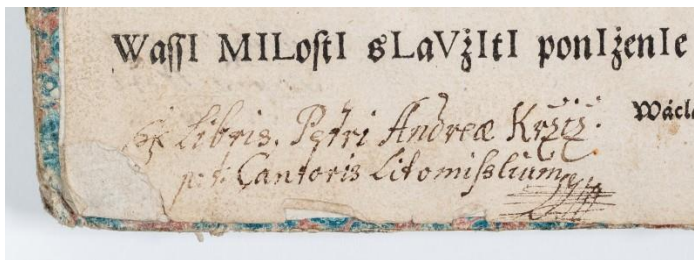 WaſſI MILoſtI sLaVżItI ponIżenIe
Wácla
Ex Libris. Petri Andreæ Krziz.
p. t. Cantoris Litomiſslium